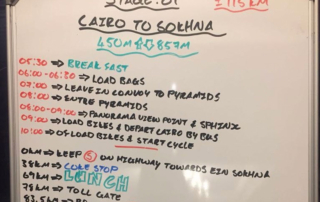 STAGE: 01 ± 115KM
CAIRO TO SOKHNA
450M 857M
05:30 ⇒ BREAKFAST
06:00 - 06:30 ⇒ LOAD BAGS
07:00 ⇒ LEAVE IN CONVOY TO PYRAMIDS
08:00 ⇒ ENTRE PYRAMIDS
08:00-09:00 ⇒ PANORAMA VIEW POINT & SPHINX
09:00 ⇒ LOAD BIKES & DEPART CAIRO BY BUS
10:00 ⇒ OFLOAD BIKES & START CYCLE
0KM ⇒ KEEP (S) ON HIGHWAY TOWARDS EIN SOKHNA
38KM ⇒ COKE STOP
69KM ⇒ LUNCH
78KM ⇒ TOLL GATE
83.5KM ⇒